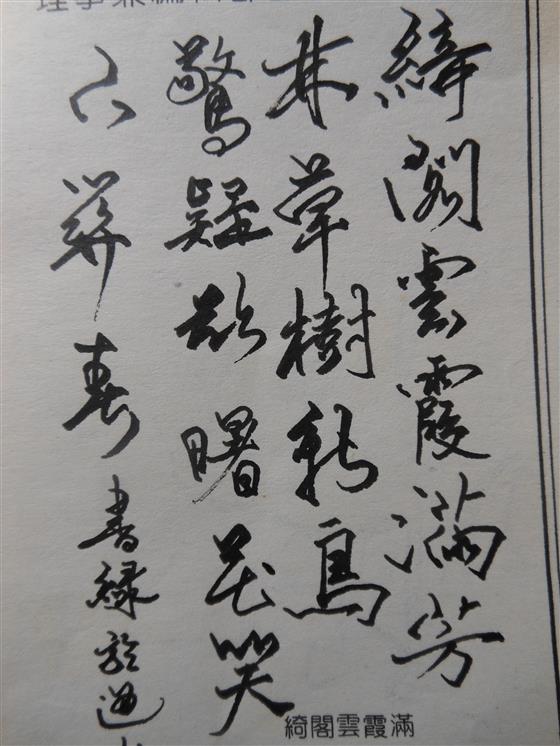 綺閣雲霞滿芳
林草樹新鳥
驚疑欲曙花笑
不關春書錄於
綺閣雲霞滿